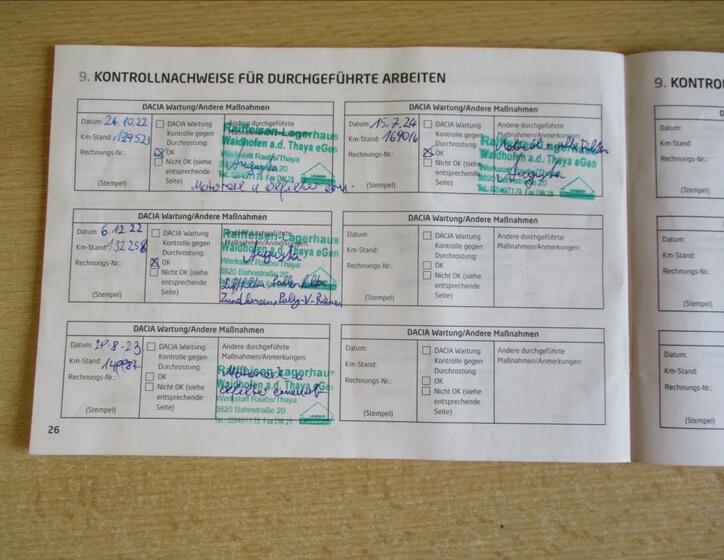 9. KONTROLLNACHWEISE FÜR DURCHGEFÜHRTE ARBEITEN
DACIA Wartung/Andere Maßnahmen
Datum: 24.10.22
Km-Stand: 129523
Rechnungs-Nr.:
(Stempel)
DACIA Wartung
Kontrolle gegen
Durchrostung:
OK
Nicht OK (siehe
entsprechende
Seite)
Andere durchgeführte
Raiffeisen-Lagerhaus
Waidhofen a.d. Thaya eGen
Werkstatt Raabs/Thaya
Bahnstraße 20
Motoröl u Ölfilter
DACIA Wartung/Andere Maßnahmen
Datum: 6.12.22
Km-Stand: 132258
Rechnungs-Nr.:
(Stempel)
DACIA Wartung
Kontrolle gegen
Durchrostung:
OK
Nicht OK (siehe
entsprechende
Seite)
Andere durchgeführte
Maßnahmen/Anmerkungen:
Raiffeisen-Lagerhaus
Waidhofen a.d. Thaya eGen
Werkstatt Raabs/Thaya
3820 Bahnstraße 20
Luftfilter Pollenfilter
Zündkerzen Poly-V-Riemen
DACIA Wartung/Andere Maßnahmen
Datum: 29.8.23
Km-Stand:
Rechnungs-Nr.:
(Stempel)
DACIA Wartung
Kontrolle gegen
Durchrostung:
OK
Nicht OK (siehe
entsprechende
Seite)
Andere durchgeführte
Maßnahmen/Anmerkungen:
Raiffeisen-Lagerhaus
Waidhofen a.d. Thaya eGen
Werkstatt Raabs/Thaya
3820 Bahnstraße 20
Ölfilter erneuert
26
DACIA Wartung/Andere Maßnahmen
Datum: 15.7.24
Km-Stand: 169016
Rechnungs-Nr.:
(Stempel)
DACIA Wartung
Kontrolle gegen
Durchrostung:
OK
Nicht OK (siehe
entsprechende
Seite)
Andere durchgeführte
Waidhofen a.d. Thaya eGen
DACIA Wartung/Andere Maßnahmen
Datum:
Km-Stand:
Rechnungs-Nr.:
(Stempel)
DACIA Wartung
Kontrolle gegen
Durchrostung:
OK
Nicht OK (siehe
entsprechende
Seite)
Andere durchgeführte
Maßnahmen/Anmerkungen:
DACIA Wartung/Andere Maßnahmen
Datum:
Km-Stand:
Rechnungs-Nr.:
(Stempel)
DACIA Wartung
Kontrolle gegen
Durchrostung:
OK
Nicht OK (siehe
entsprechende
Seite)
Andere durchgeführte
Maßnahmen/Anmerkungen:
9. KONTRO
Datum:
Km-Stand:
Rechnungs-Nr.:
(Stempel)
Datum:
Km-Stand:
Rechnungs-Nr.:
(Stempel)
Datum:
Km-Stand:
Rechnungs-Nr.:
(Stempel)